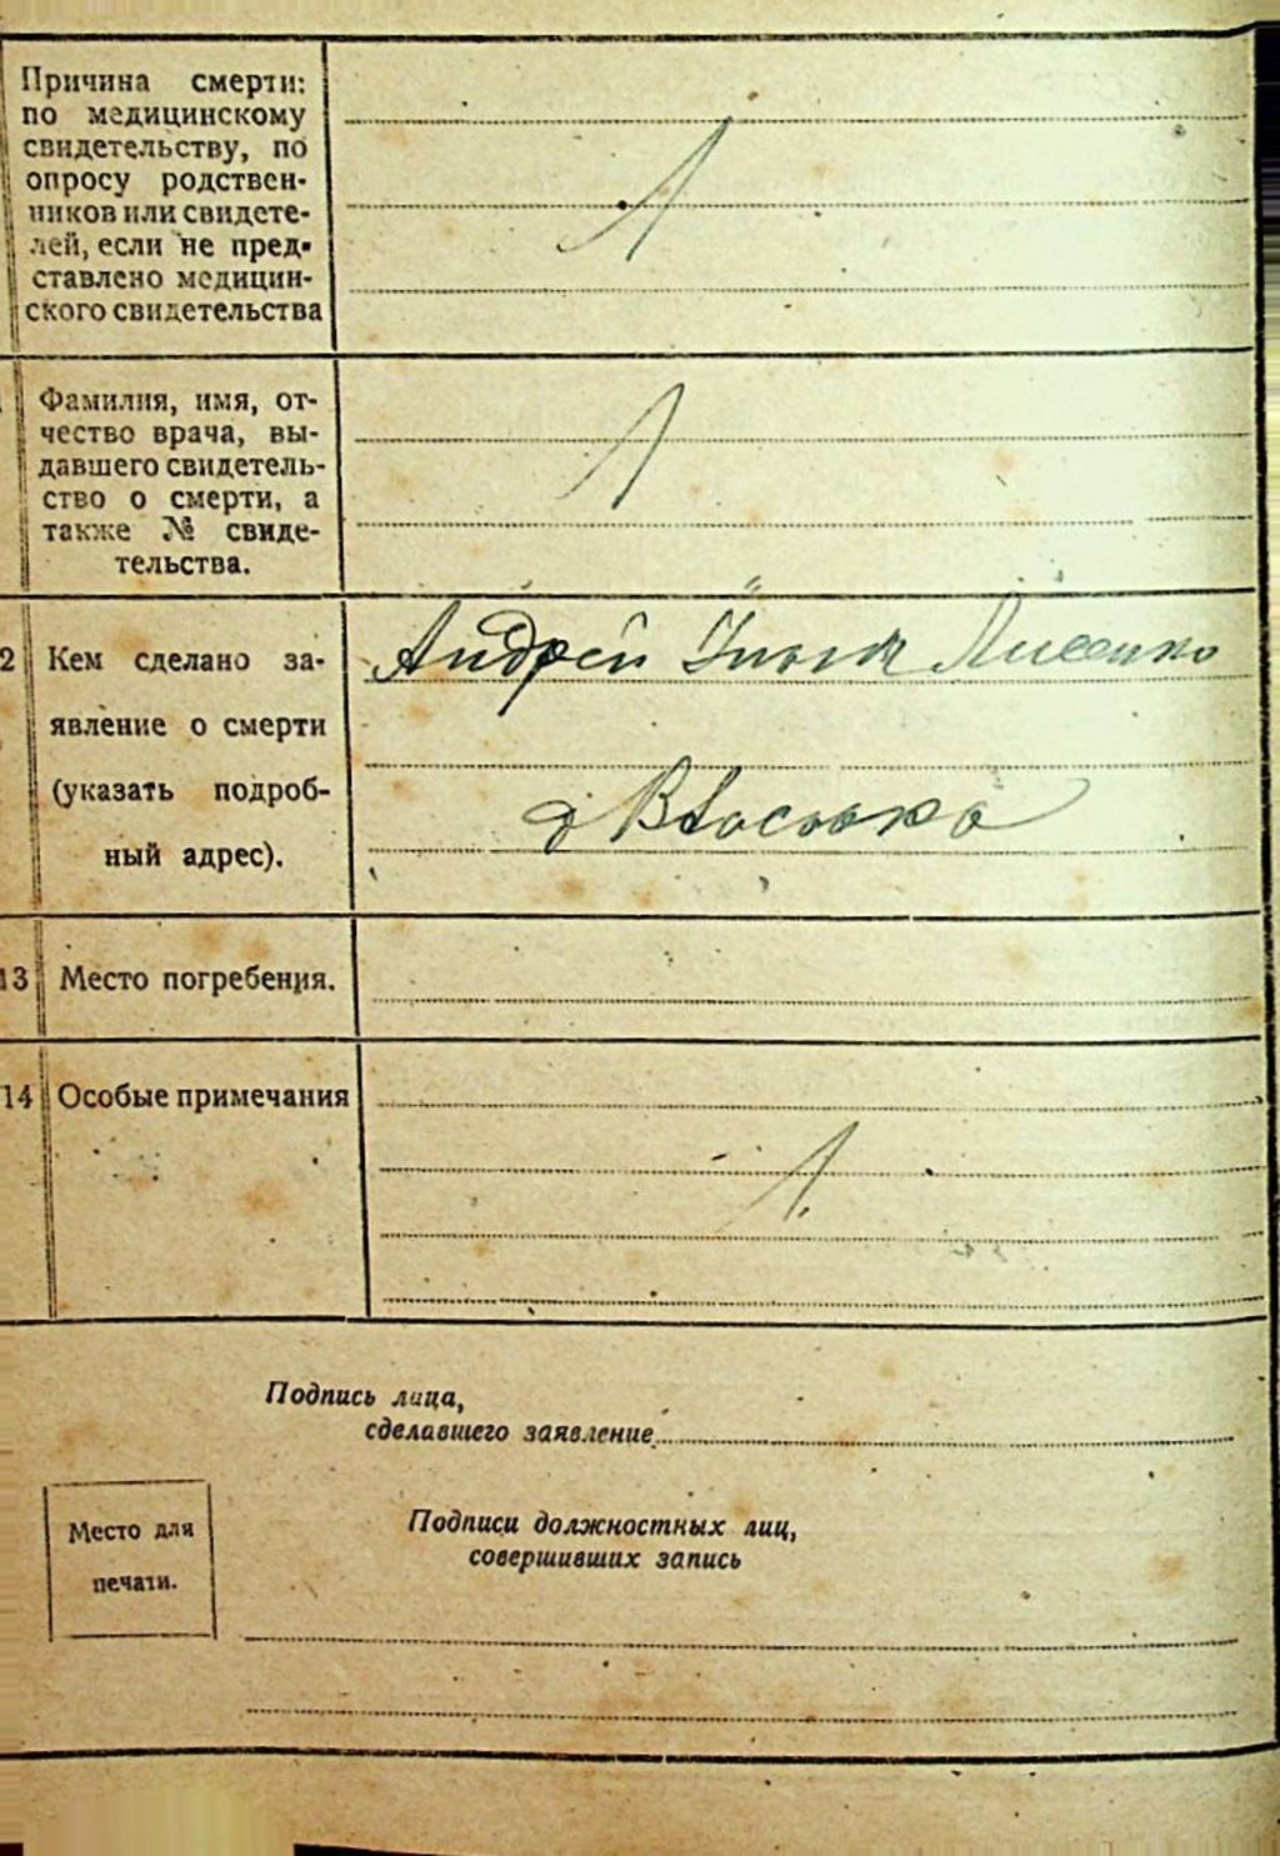 Причина смерти:
по медицинскому
свидетельству, по
опросу родствен-
ников или свидете-
лей, если не пред-
ставлено медицин-
ского свидетельства
Фамилия, имя, от-
чество врача, вы-
давшего свидетель-
ство о смерти, а
также № свиде-
тельства.
2 Кем сделано за-
явление о смерти
(указать подроб-
ный адрес).
Андрей
13 Место погребения.
14 Особые примечания
Подпись лица,
сделавшего заявление
Место для
печати.
Подписи должностных лиц,
совершивших запись